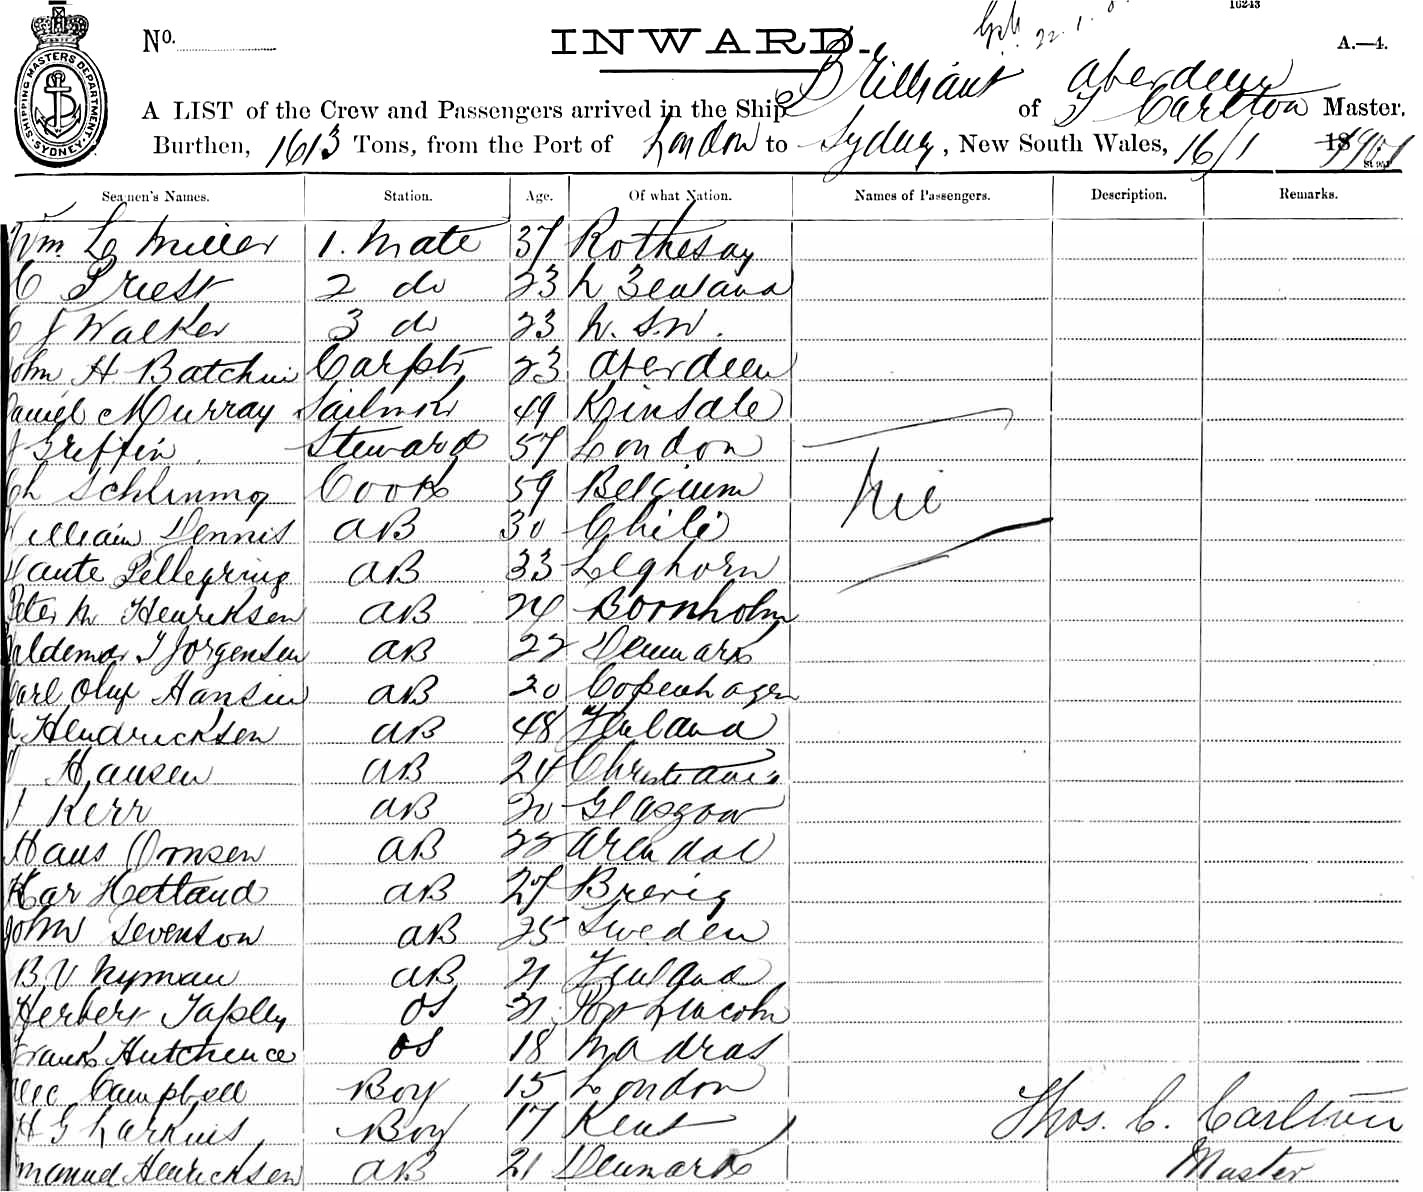 16243
No.
INWARD.
A.—4.
SHIPPING MASTERS DEPARTMENT SYDNEY
A LIST of the Crew and Passengers arrived in the Ship Brilliant of Aberdeen T Carlton Master.
Burthen, 1613 Tons, from the Port of London to Sydney, New South Wales, 16/1 1901
Seamen's Names. Station. Age. Of what Nation. Names of Passengers. Description. Remarks.
Wm. L Miller 1. Mate 37 Rothesay
C Priest 2 do 23 N Zealand
C J Walker 3 do 23 N.S.W.
John H Batchin Carptr 23 Aberdeen
Daniel Murray Sailmkr 49 Kinsale
J Griffin Steward 57 London
Ch Schlinmog Cook 59 Belgium
Nil
William Dennis AB 30 Chili
Dante Pellegring AB 33 Leghorn
Peter M Henriksen AB 24 Bornholm
Valdemar T Jorgensen AB 22 Denmark
Carl Oluf Hansen AB 20 Copenhagen
Hendricksen AB 48 Finland
Hansen AB 24 Christiania
J Kerr AB 20 Glasgow
Hans Ornsen AB 22 Arendal
Hetland AB 27 Brevig
John Sevenson AB 25 Sweden
B V Nyman AB 21 Finland
Herbert Tapley OS 21 Port Lincoln
Frank Hutchence OS 18 Madras
Alec Campbell Boy 15 London
H G Larkins Boy 17 Kent
Thos. C. Carlton
Emanuel Henricksen AB 21 Denmark
Master